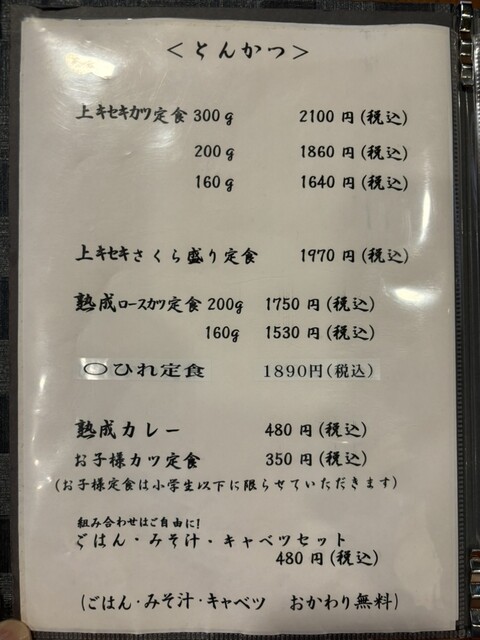 ＜とんかつ＞
上キセキカツ定食 300g 2100 円(税込)
200g 1860 円(税込)
160g 1640 円(税込)
上キセキさくら盛り定食 1970 円(税込)
熟成ロースカツ定食 200g 1750 円(税込)
160g 1530 円(税込)
〇ひれ定食 1890円(税込)
熟成カレー 480 円(税込)
お子様カツ定食 350 円(税込)
(お子様定食は小学生以下に限らせていただきます)
組み合わせはご自由に!
ごはん・みそ汁・キャベツセット
480 円(税込)
(ごはん・みそ汁・キャベツ おかわり無料)